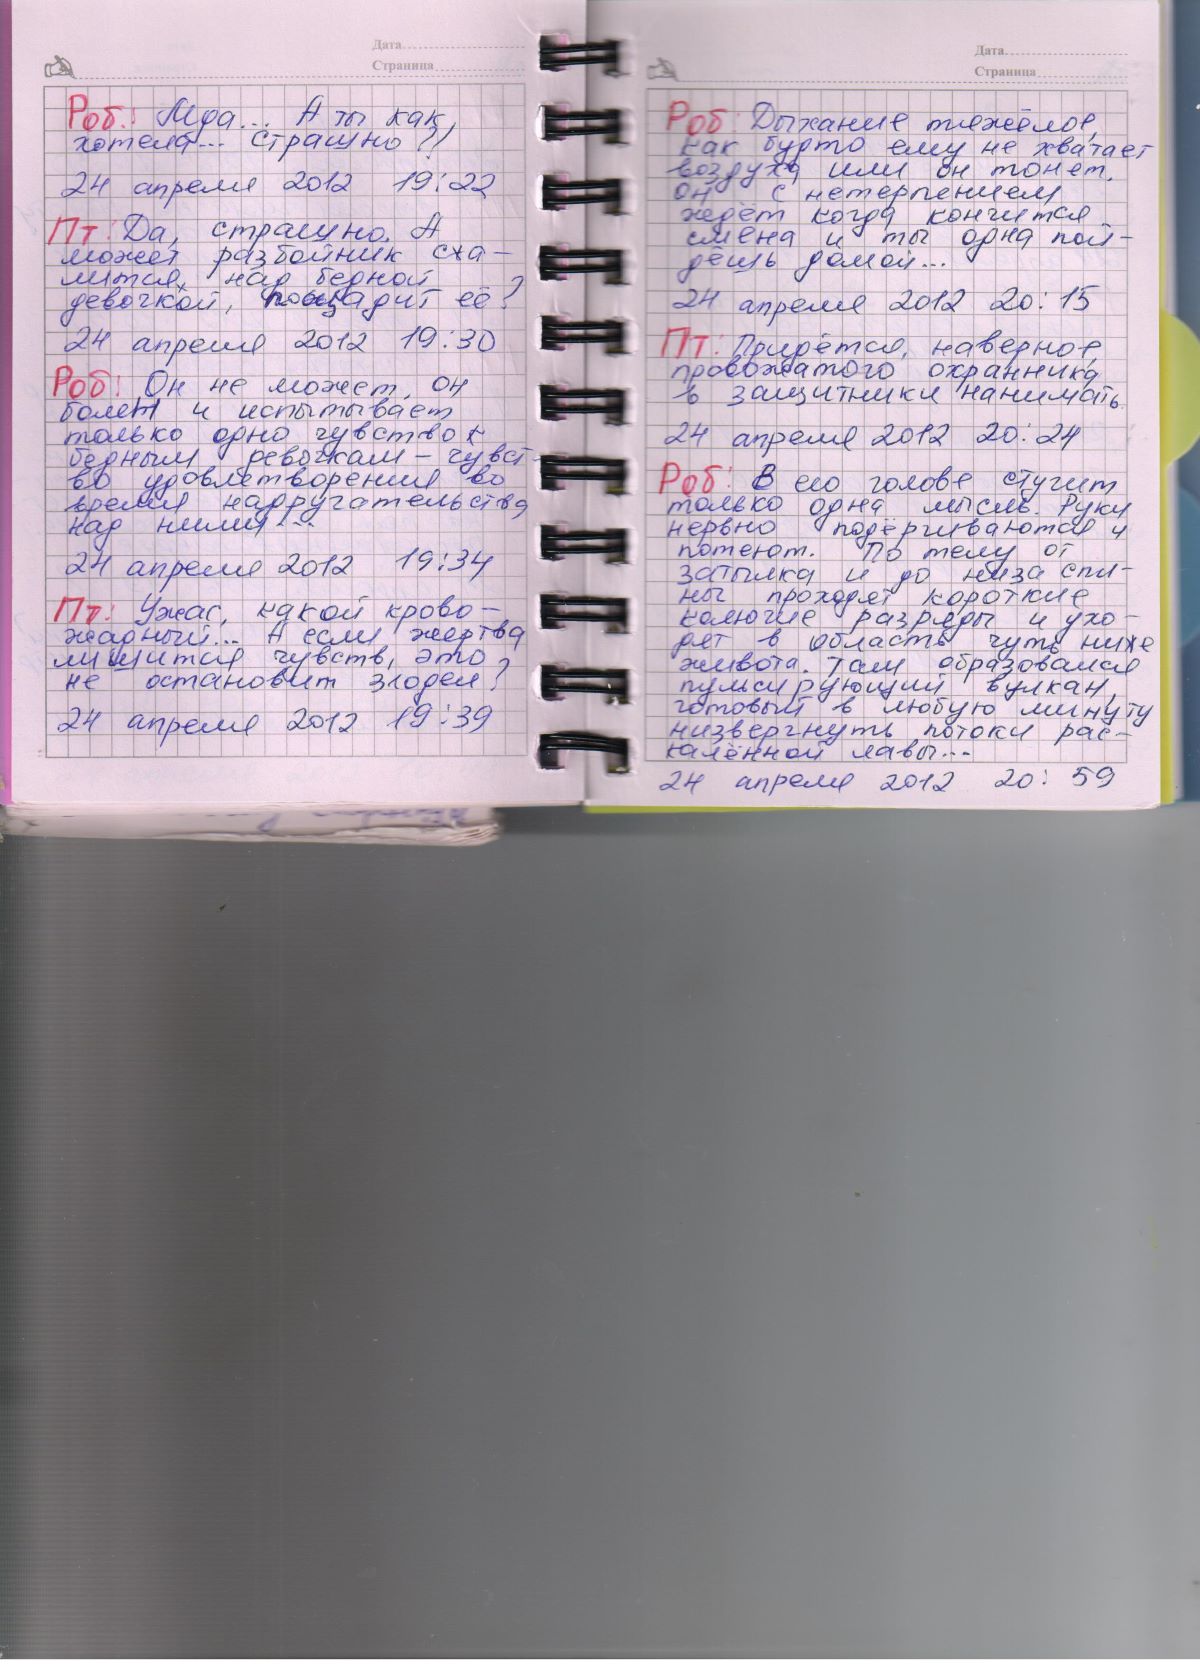 Дата
Страница
Роб: Мда... А ты как
хотела... страшно?!
24 апреля 2012 19:22
Пт: Да, страшно. А
может разбойник сжа-
лится над бедной
девочкой, пощадит её?
24 апреля 2012 19:30
Роб: Он не может, он
болен и испытывает
только одно чувство к
бедным девочкам – чувст-
во удовлетворения во
время надругательства
над ними...
24 апреля 2012 19:34
Пт: Ужас, какой крово-
жадный... А если жертва
лишится чувств, это
не остановит злодея?
24 апреля 2012 19:39
Дата
Страница
Роб: Дыхание тяжёлое,
как будто ему не хватает
воздуха или он тонет.
Он с нетерпением
ждёт когда кончится
смена и ты одна пой-
дёшь домой...
24 апреля 2012 20:15
Пт: Придётся, наверное,
провожатого охранника
в защитники нанимать.
24 апреля 2012 20:24
Роб: В его голове стучит
только одна мысль. Руки
нервно подёргиваются и
потеют. По телу от
затылка и до низа спи-
ны проходят короткие
колючие разряды и ухо-
дят в область чуть ниже
живота. Там образовался
пульсирующий вулкан,
готовый в любую минуту
низвергнуть потоки рас-
калённой лавы...
24 апреля 2012 20:59